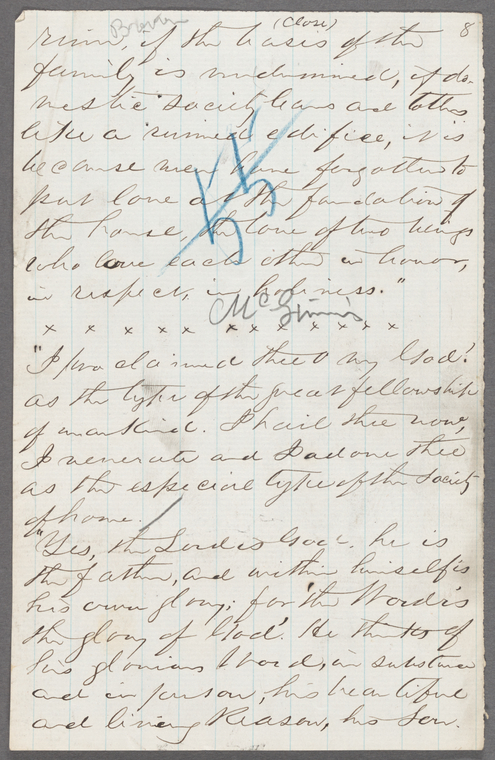 Brown
(Close)
8
ruin, if the basis of the
family is undermined, if do-
mestic society leans and totters
like a ruined edifice, it is
because men have forgotten to
put love at the foundation of
the house, the love of two beings
who love each other in honor,
in respect, in holiness."
McGinnis
x x x x x x x x x x x x
"I proclaimed thee O my God!
as the type of the great fellowship
of mankind. I hail thee now,
I venerate and I adore thee
as the especial type of the society
of home.
"Yes, the Lord is God. he is
the father, and within himself is
his own glory; for the Word is
the glory of God. He thinks of
his glorious Word, in substance
and in person, his beautiful
and living Reason, his Son.